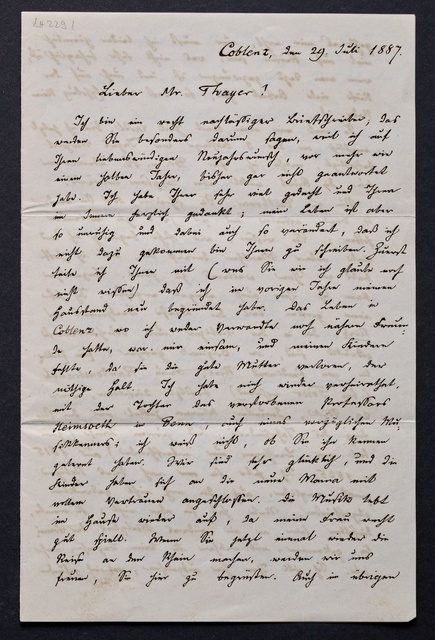 Coblenz, den 29 Juli 1887.
Lieber Mr. Thayer!
Ich bin ein recht nachlässiger Briefschreiber; das
werden Sie besonders darum sagen, weil ich auf
Ihren liebenswürdigen Neujahrswunsch, vor mehr wie
einem halben Jahre, bisher gar nicht geantwortet
habe. Ich habe Ihrer sehr viel gedacht und Ihnen
im Innern herzlich gedankt; mein Leben ist aber
so unruhig und dabei auch so verändert, daß ich
nicht dazu gekommen bin Ihnen zu schreiben. Zuerst
theile ich Ihnen mit (was Sie wie ich glaube noch
nicht wissen) daß ich im vorigen Jahre meinen
Hausstand neu begründet habe. Das Leben in
Coblenz, wo ich weder Verwandte noch nähere Freun-
de hatte, war mir einsam, und meinen Kindern
fehlte, da sie die gute Mutter verloren, der
nöthige Halt. Ich habe mich wieder verheirathet,
mit der Tochter des verstorbenen Professors
Heimsoeth in Bonn, auch eines vorzüglichen Mu-
sikkenners; ich weiß nicht, ob Sie ihn kennen
gelernt haben. Wir sind sehr glücklich, und die
Kinder haben sich an die neue Mama mit
vollem Vertrauen angeschlossen. Die Musik lebt
im Hause wieder auf, da meine Frau recht
gut spielt. Wenn Sie jetzt einmal wieder die
Reise an den Rhein machen, werden wir uns
freuen, Sie hier zu begrüßen. Auch im übrigen